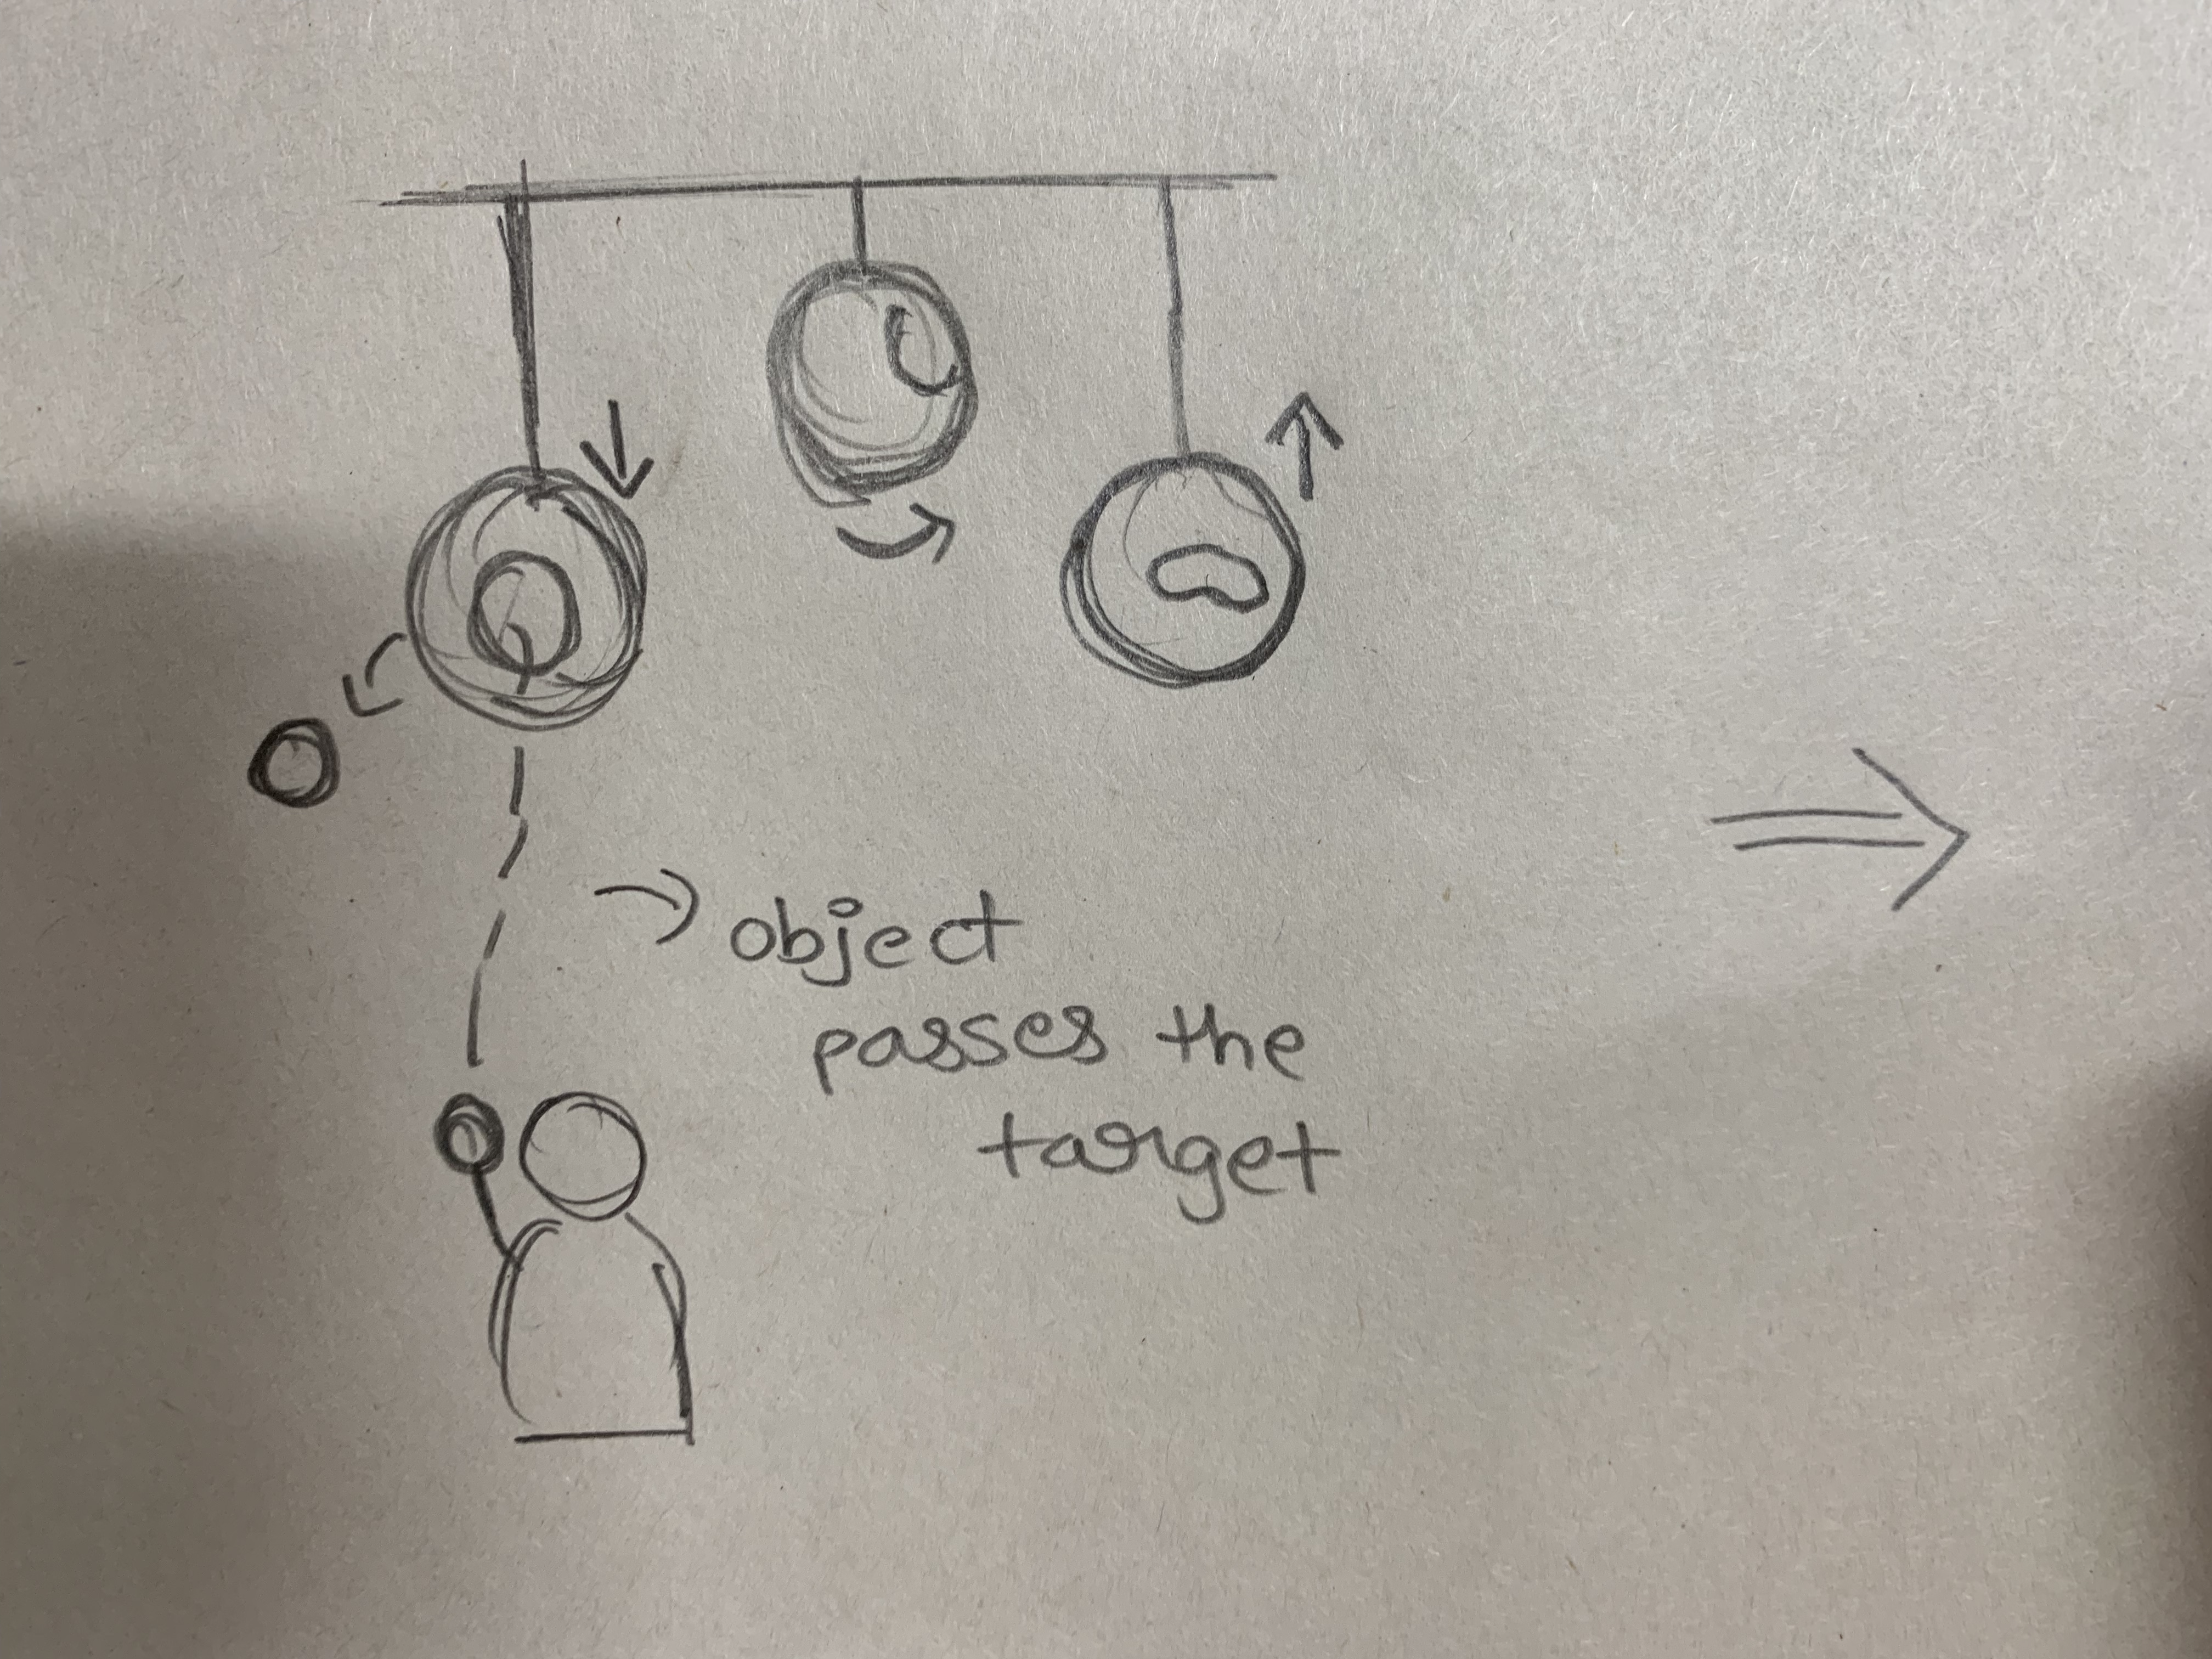 object
passes the
target